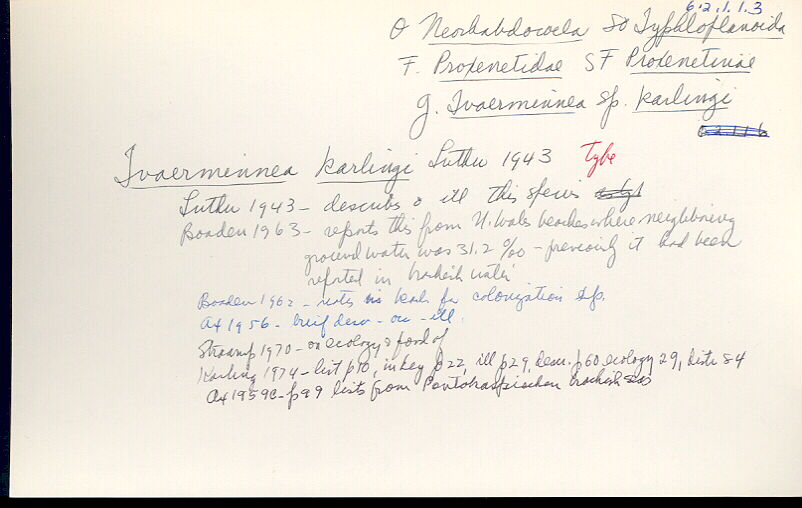 6.2.1.1.3
O Neorhabdocoela SO Typhloplanoida
F. Proxenetidae SF Proxenetinae
g. Tvaerminnea sp. karlingi
Tvaerminnea karlingi Luther 1943 Type
Luther 1943 - describes & ill this species
Boaden 1963 - reports this from N. Wales beaches where neighboring
ground water was 31.2 ‰ - previously it had been
reported in brackish water
Boaden 1962 - notes in beach for colonization exp.
Ax 1956 - brief descr - occ - ill.
Straarup 1970 - on ecology & food of
Karling 1974 - list p10, in key p22, ill p29, descr. p60 ecology 29, distr 84
Ax 1959c - p99 lists from Pontokaspischen brackish seas